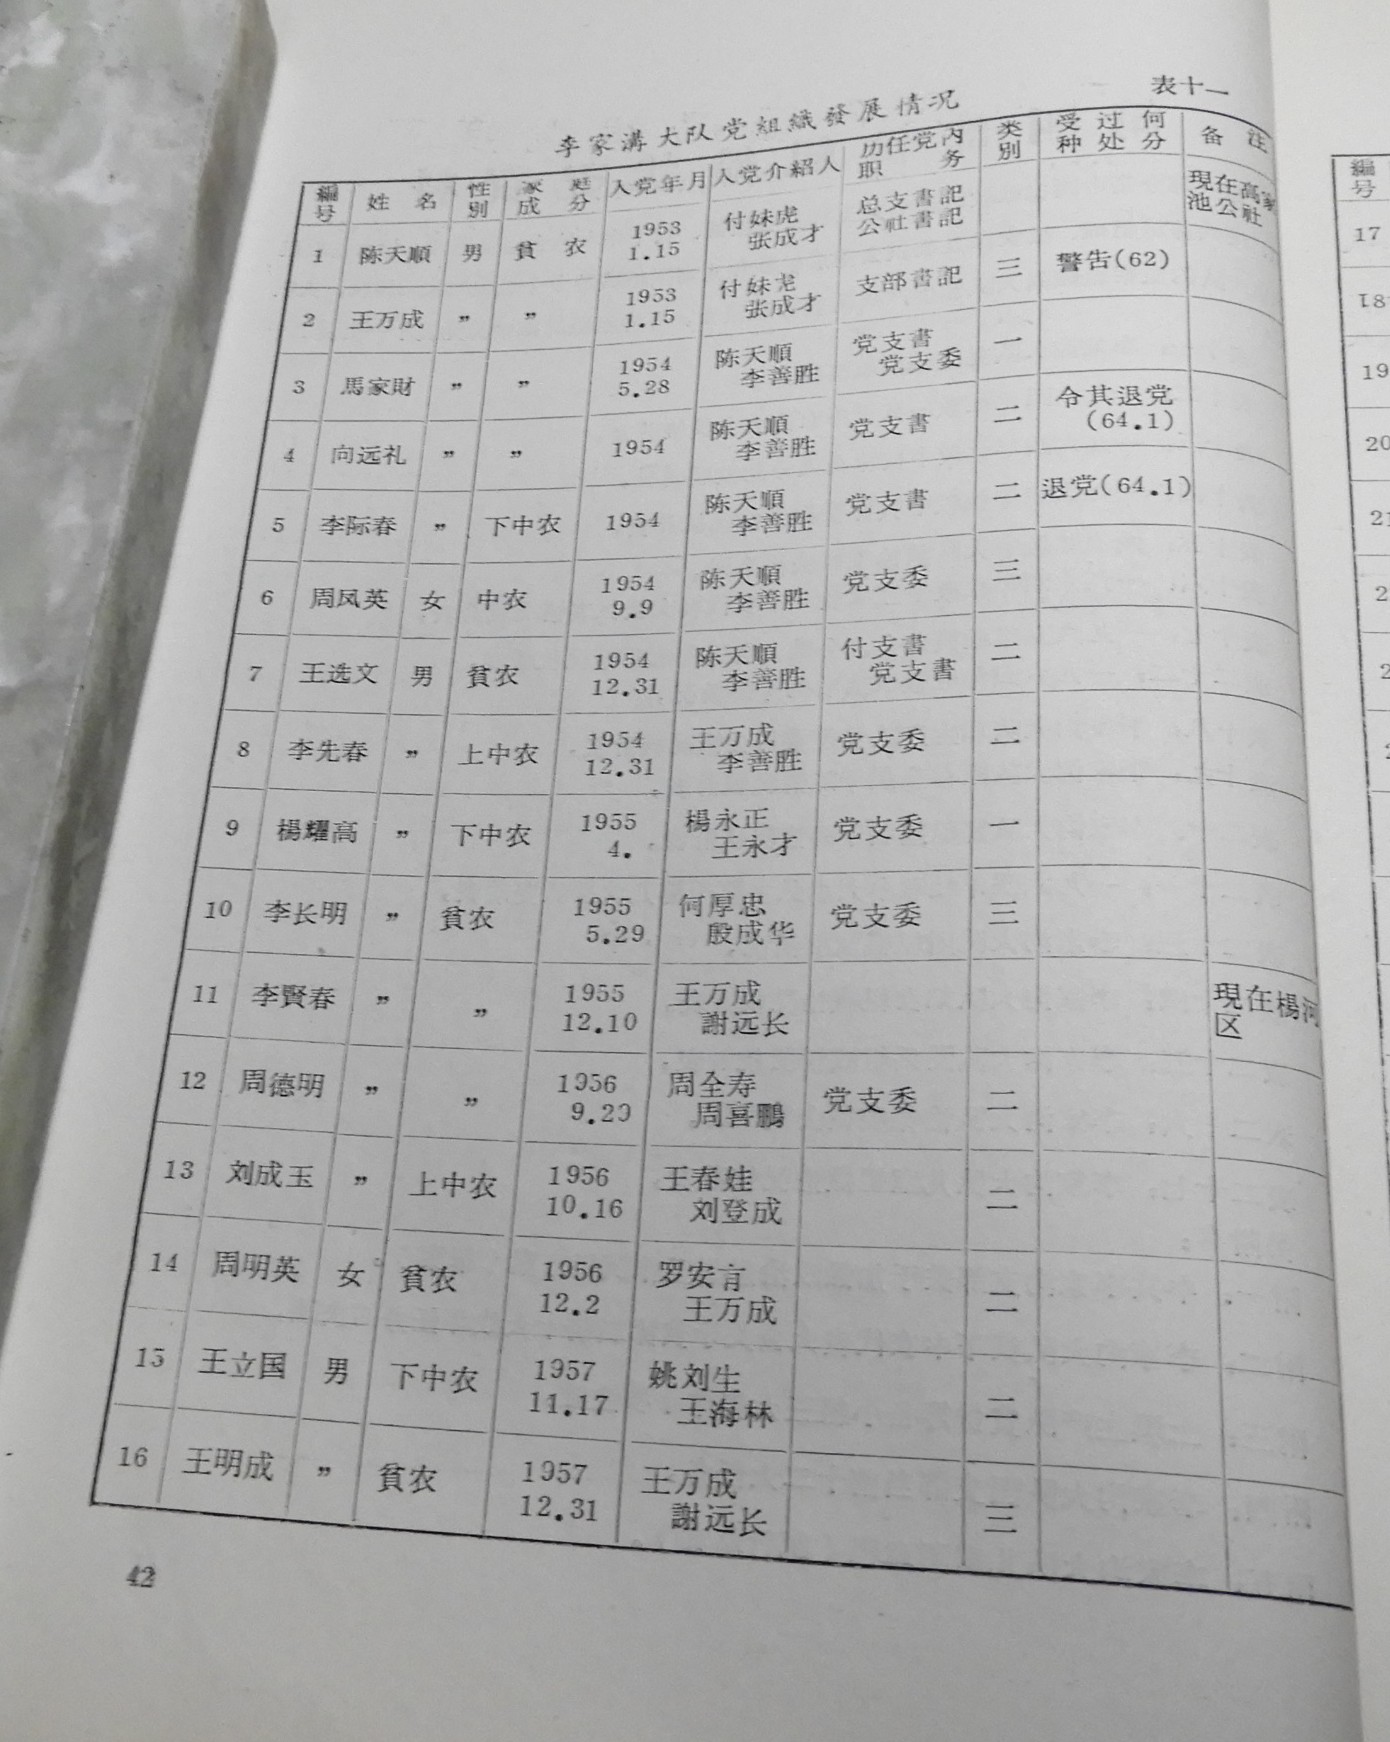 表十一
李家溝大队党組織發展情况
編号 姓名 性別 家庭成分 入党年月 入党介紹人 历任党内职务 类別 受过何种处分 备注
1 陈天順 男 貧农 1953 1.15 付妹虎 张成才 总支書記 公社書記 現在高家池公社
2 王万成 〃 〃 1953 1.15 付妹虎 张成才 支部書記 三 警告(62)
3 馬家財 〃 〃 1954 5.28 陈天順 李善胜 党支書 党支委 一
4 向远礼 〃 〃 1954 陈天順 李善胜 党支書 二 令其退党 (64.1)
5 李际春 〃 下中农 1954 陈天順 李善胜 党支書 二 退党(64.1)
6 周凤英 女 中农 1954 9.9 陈天順 李善胜 党支委 三
7 王选文 男 貧农 1954 12.31 陈天順 李善胜 付支書 党支書 二
8 李先春 〃 上中农 1954 12.31 王万成 李善胜 党支委 二
9 楊耀高 〃 下中农 1955 4. 楊永正 王永才 党支委 一
10 李长明 〃 貧农 1955 5.29 何厚忠 殷成华 党支委 三
11 李賢春 〃 〃 1955 12.10 王万成 謝远长 現在楊河区
12 周德明 〃 〃 1956 9.20 周全寿 周喜鵬 党支委 二
13 刘成玉 〃 上中农 1956 10.16 王春娃 刘登成 二
14 周明英 女 貧农 1956 12.2 罗安言 王万成 二
15 王立国 男 下中农 1957 11.17 姚刘生 王海林 二
16 王明成 〃 貧农 1957 12.31 王万成 謝远长 三
42
編号
17
18
19
20